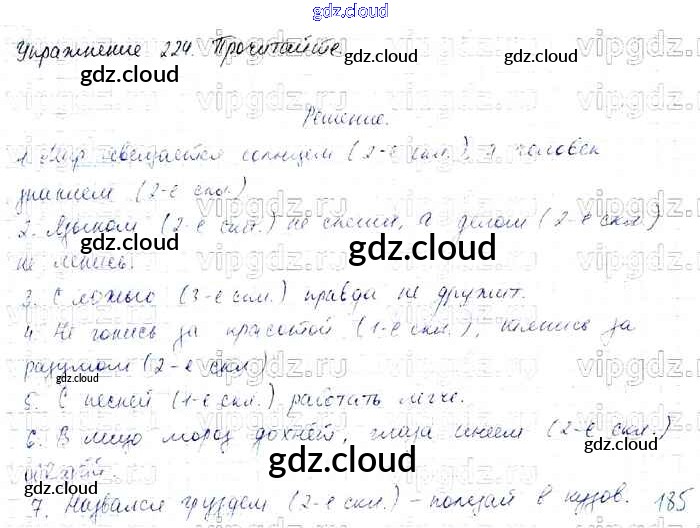 gdz.cloud
Упражнение 224. Прочитайте.
gdz.cloud gdz.cloud
vipgdz.ru
Решение.
1. Мир освещается солнцем (2-е скл.), а человек
знанием (2-е скл.)
2. Языком (2-е скл.) не спеши, а делом (2-е скл.)
не ленись.
gdz.cloud
3. С ложью (3-е скл.) правда не дружит.
4. Не гонись за красотой (1-е скл.), гонись за
разумом (2-е скл.)
gdz.cloud gdz.cloud
5. С песней (1-е скл.) работать легче.
6. В лицо мороз дохнёт, глаза инеем (2-е скл.)
gdz.cloud
7. Назвался груздем (2-е скл.) - полезай в кузов. 185
gdz.cloud